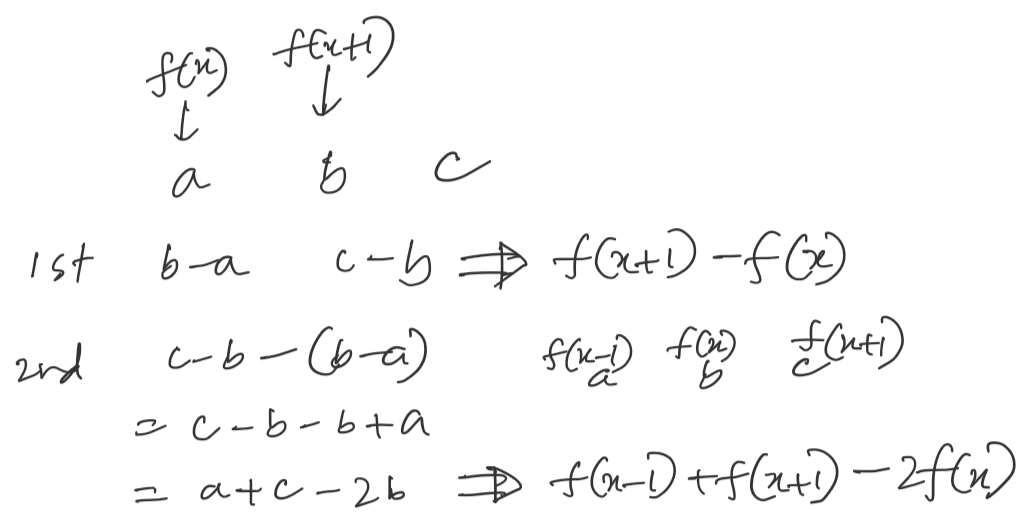 f(x) f(x+1)
↓ ↓
a b c
1st b-a c-b ⇒ f(x+1) - f(x)
2nd c-b-(b-a) f(x-1) f(x) f(x+1)
a b c
= c-b-b+a
= a+c-2b ⇒ f(x-1)+f(x+1)-2f(x)